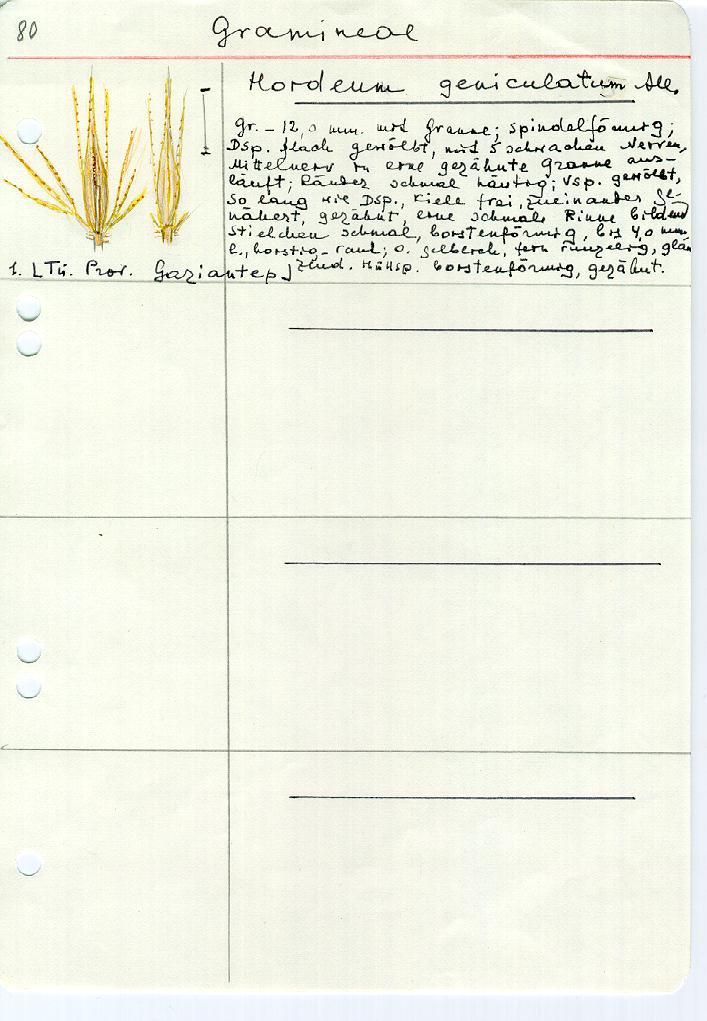 80
Gramineae
Hordeum geniculatum All.
Gr. - 12,0 mm. mit Granne; spindelförmig;
Dsp. flach gewölbt, mit 5 schwachen Nerven,
Mittelnerv in eine gezähnte Granne aus-
läuft; Ränder schmal häutig; Vsp. gewölbt,
so lang wie Dsp., Kiele frei, zueinander ge-
nähert, gezähnt, eine schmale Rinne bildend
Stielchen schmal, borstenförmig, bis 4,0 mm
l., borstig-rauh; o. gelberch, fein runzelig, glän
zend. Hüllsp. borstenförmig, gezähnt.
1. LTü. Prov. Gaziantep